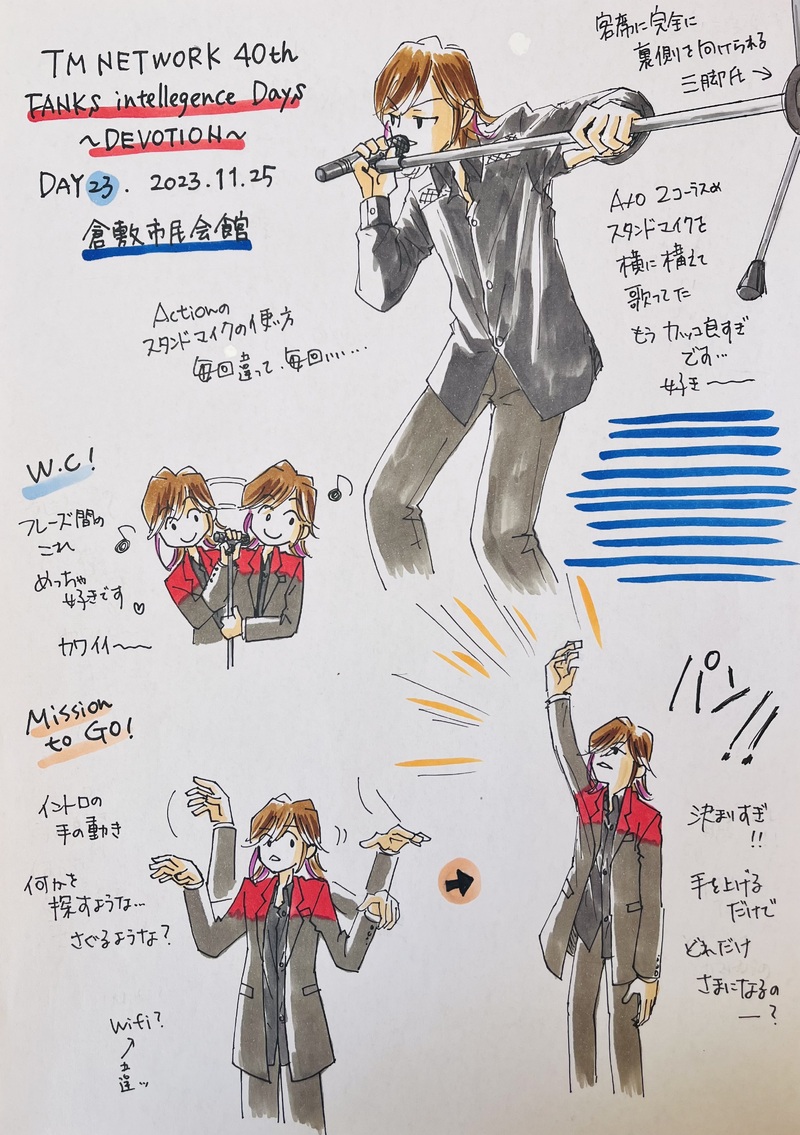 TM NETWORK 40th
FANKS intellegence Days
~DEVOTION~
DAY 23. 2023.11.25
倉敷市民会館
客席に完全に
裏側を向けられる
三脚氏→
Actionの
スタンドマイクの使い方
毎回違って、毎回いい…
2コーラスめ
スタンドマイクを
横に構えて
歌ってた
もうカッコ良すぎ
です…
好き〜
W.C!
フレーズ間の
これ
めっちゃ
好きです♡
カワイイ〜
Mission
to GO!
イントロの
手の動き
何かを
探すような…
さぐるような?
Wifi?
↑
違ッ
パン!!
決まりすぎ
!!
手を上げる
だけで
どれだけ
さまになるの
ー?